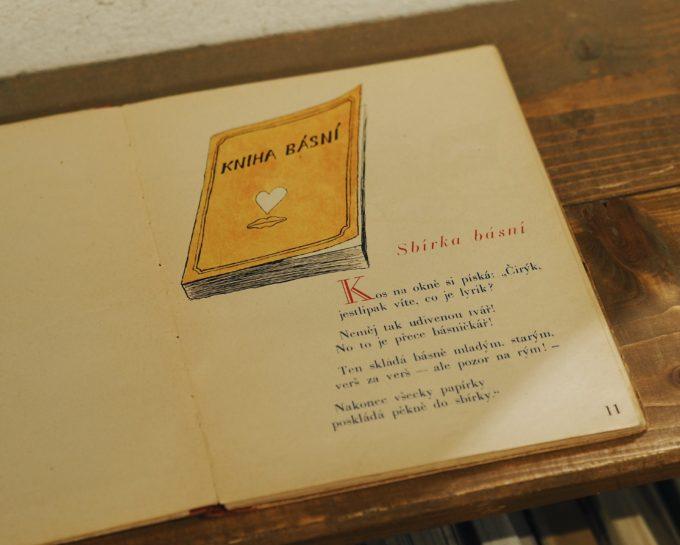 KNIHA BÁSNÍ
Sbírka básní
Kos na okně si píská: „Čirýk,
jestlipak víte, co je lyrik?
Neměj tak udivenou tvář!
No to je přece básničkář!
Ten skládá básně mladým, starým,
verš za verš — ale pozor na rým! –
Nakonec všecky papírky
poskládá pěkně do sbírky.“
11